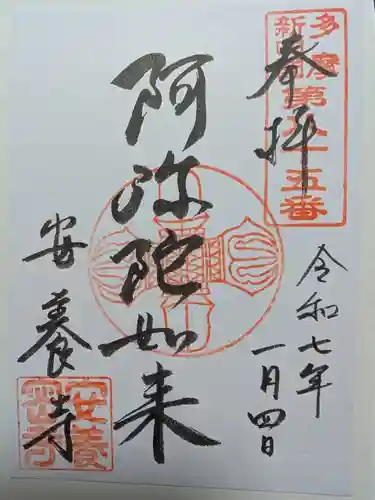 多摩
新四国
第八十五番
奉拝
令和七年
一月四日
阿弥陀如来
安養寺
安養